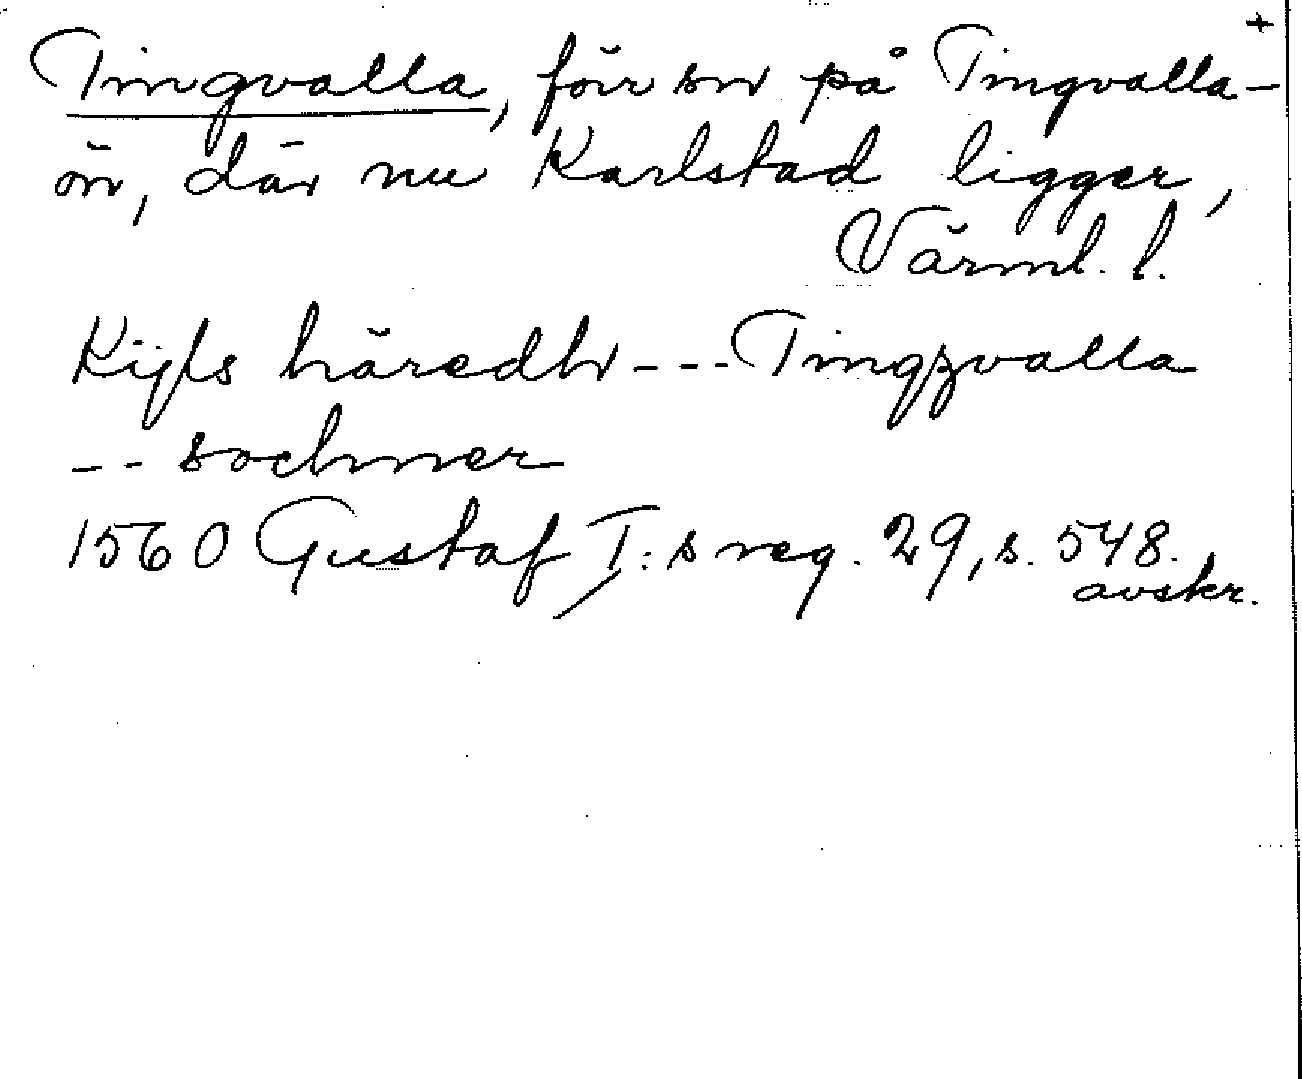 +
Tingvalla, förr sn på Tingvalla-
ön, där nu Karlstad ligger,
Värml. l.
Kijls häredh --- Tingzvalla
-- sochner
1560 Gustaf I:s reg. 29, s. 548.
avskr.